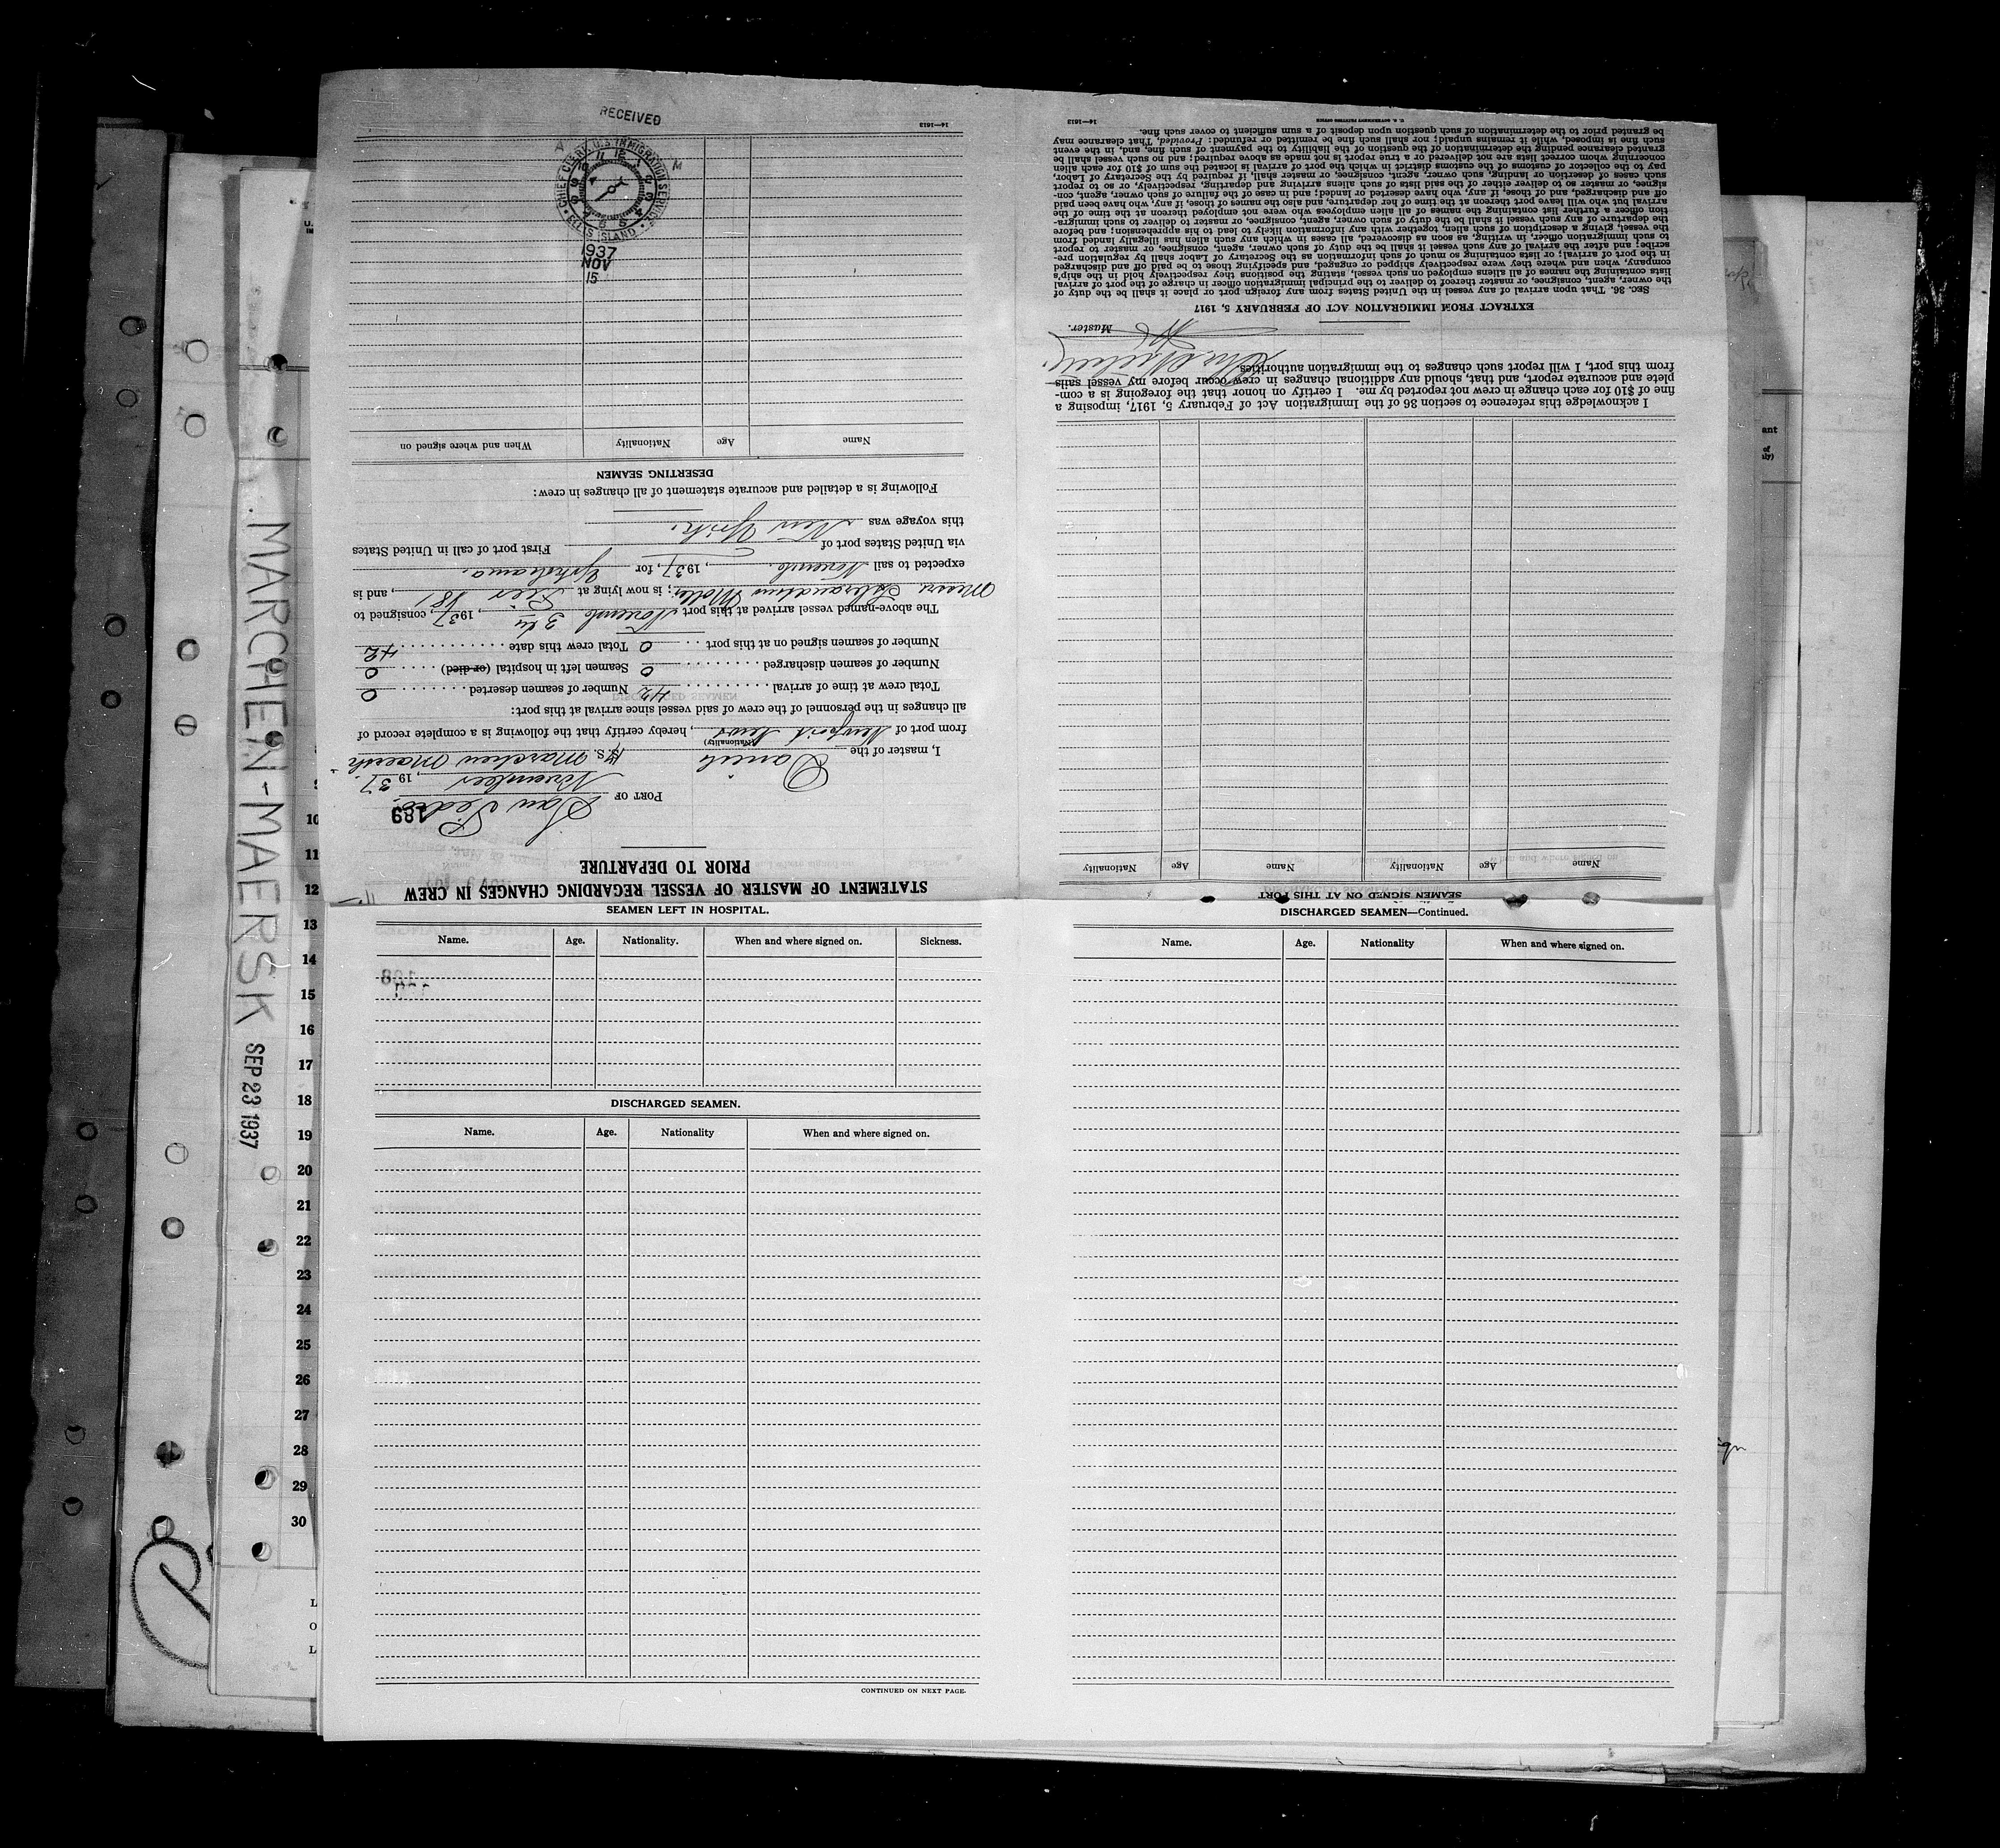 MARCHEN-MAERSK SEP 23 1937
10
11
12
13
14
15
16
17
18
19
20
21
22
23
24
25
26
27
28
29
30
STATEMENT OF MASTER OF VESSEL REGARDING CHANGES IN CREW
PRIOR TO DEPARTURE
189
PORT OF San Pedro.
November, 1937.
I, master of the Danish M.S. Marchen Maersk
(Nationality)
from port of Newport News, hereby certify that the following is a complete record of
all changes in the personnel of the crew of said vessel since arrival at this port:
Total crew at time of arrival 42 Number of seamen deserted 0
Number of seamen discharged 0 Seamen left in hospital (or died) 0
Number of seamen signed on at this port 0 Total crew this date 42
The above-named vessel arrived at this port November, 1937, consigned to
Messrs. Moller; is now lying at Pier 181, and is
expected to sail November., 1937, for Yokohama.
via United States port of First port of call in United States
this voyage was New York.
Following is a detailed and accurate statement of all changes in crew:
DESERTING SEAMEN
Name Age Nationality When and where signed on
RECEIVED
A M
CHIEF CLERK, U.S. IMMIGRATION SERVICE
ELLIS ISLAND
1937
NOV
15
14—1613
SEAMEN SIGNED ON AT THIS PORT
Name Age Nationality Name Age Nationality
I acknowledge this reference to section 36 of the Immigration Act of February 5, 1917, imposing a
fine of $10 for each change in crew not reported by me. I certify on honor that the foregoing is a com-
plete and accurate report, and that, should any additional changes in crew occur before my vessel sails
from this port, I will report such changes to the immigration authorities.
Master.
EXTRACT FROM IMMIGRATION ACT OF FEBRUARY 5, 1917
SEC. 36. That upon arrival of any vessel in the United States from any foreign port or place it shall be the duty of
the owner, agent, consignee, or master thereof to deliver to the principal immigration officer in charge of the port of arrival
lists containing the names of all aliens employed on such vessel, stating the positions they respectively hold in the ship's
company, when and where they were respectively shipped or engaged, and specifying those to be paid off and discharged
in the port of arrival; or lists containing so much of such information as the Secretary of Labor shall by regulation pre-
scribe; and after the arrival of any such vessel it shall be the duty of such owner, agent, consignee, or master to report
to such immigration officer, in writing, as soon as discovered, all cases in which any such alien has illegally landed from
the vessel, giving a description of such alien, together with any information likely to lead to his apprehension; and before
the departure of any such vessel it shall be the duty of such owner, agent, consignee, or master to deliver to such immigra-
tion officer a further list containing the names of all alien employees who were not employed thereon at the time of the
arrival but who will leave port thereon at the time of her departure, and also the names of those, if any, who have been paid
off and discharged, and of those, if any, who have deserted or landed; and in case of the failure of such owner, agent, con-
signee, or master so to deliver either of the said lists of such aliens arriving and departing, respectively, or so to report
such cases of desertion or landing, such owner, agent, consignee, or master shall, if required by the Secretary of Labor,
pay to the collector of customs of the customs district in which the port of arrival is located the sum of $10 for each alien
concerning whom correct lists are not delivered or a true report is not made as above required; and no such vessel shall be
granted clearance pending the determination of the question of the liability to the payment of such fine, and, in the event
such fine is imposed, while it remains unpaid; nor shall such fine be remitted or refunded: Provided, That clearance may
be granted prior to the determination of such question upon deposit of a sum sufficient to cover such fine.
U. S. GOVERNMENT PRINTING OFFICE 14—1613
SEAMEN LEFT IN HOSPITAL.
Name. Age. Nationality. When and where signed on. Sickness.
DISCHARGED SEAMEN.
Name. Age. Nationality When and where signed on.
CONTINUED ON NEXT PAGE.
DISCHARGED SEAMEN—Continued.
Name. Age. Nationality When and where signed on.